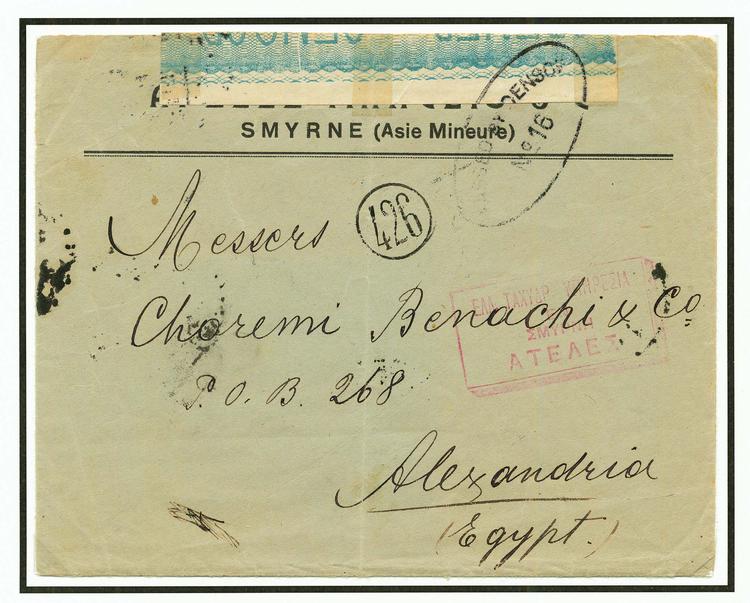 SMYRNE (Asie Mineure)
PASSED BY CENSOR
No 16
426
Messers
Choremi Benachi & Co
P. O. B. 268
ΕΛΛ. ΤΑΧΥΔΡ. ΥΠΗΡΕΣΙΑ
ΣΜΥΡΝΗ
ΑΤΕΛΕΣ
Alexandria
(Egypt.)